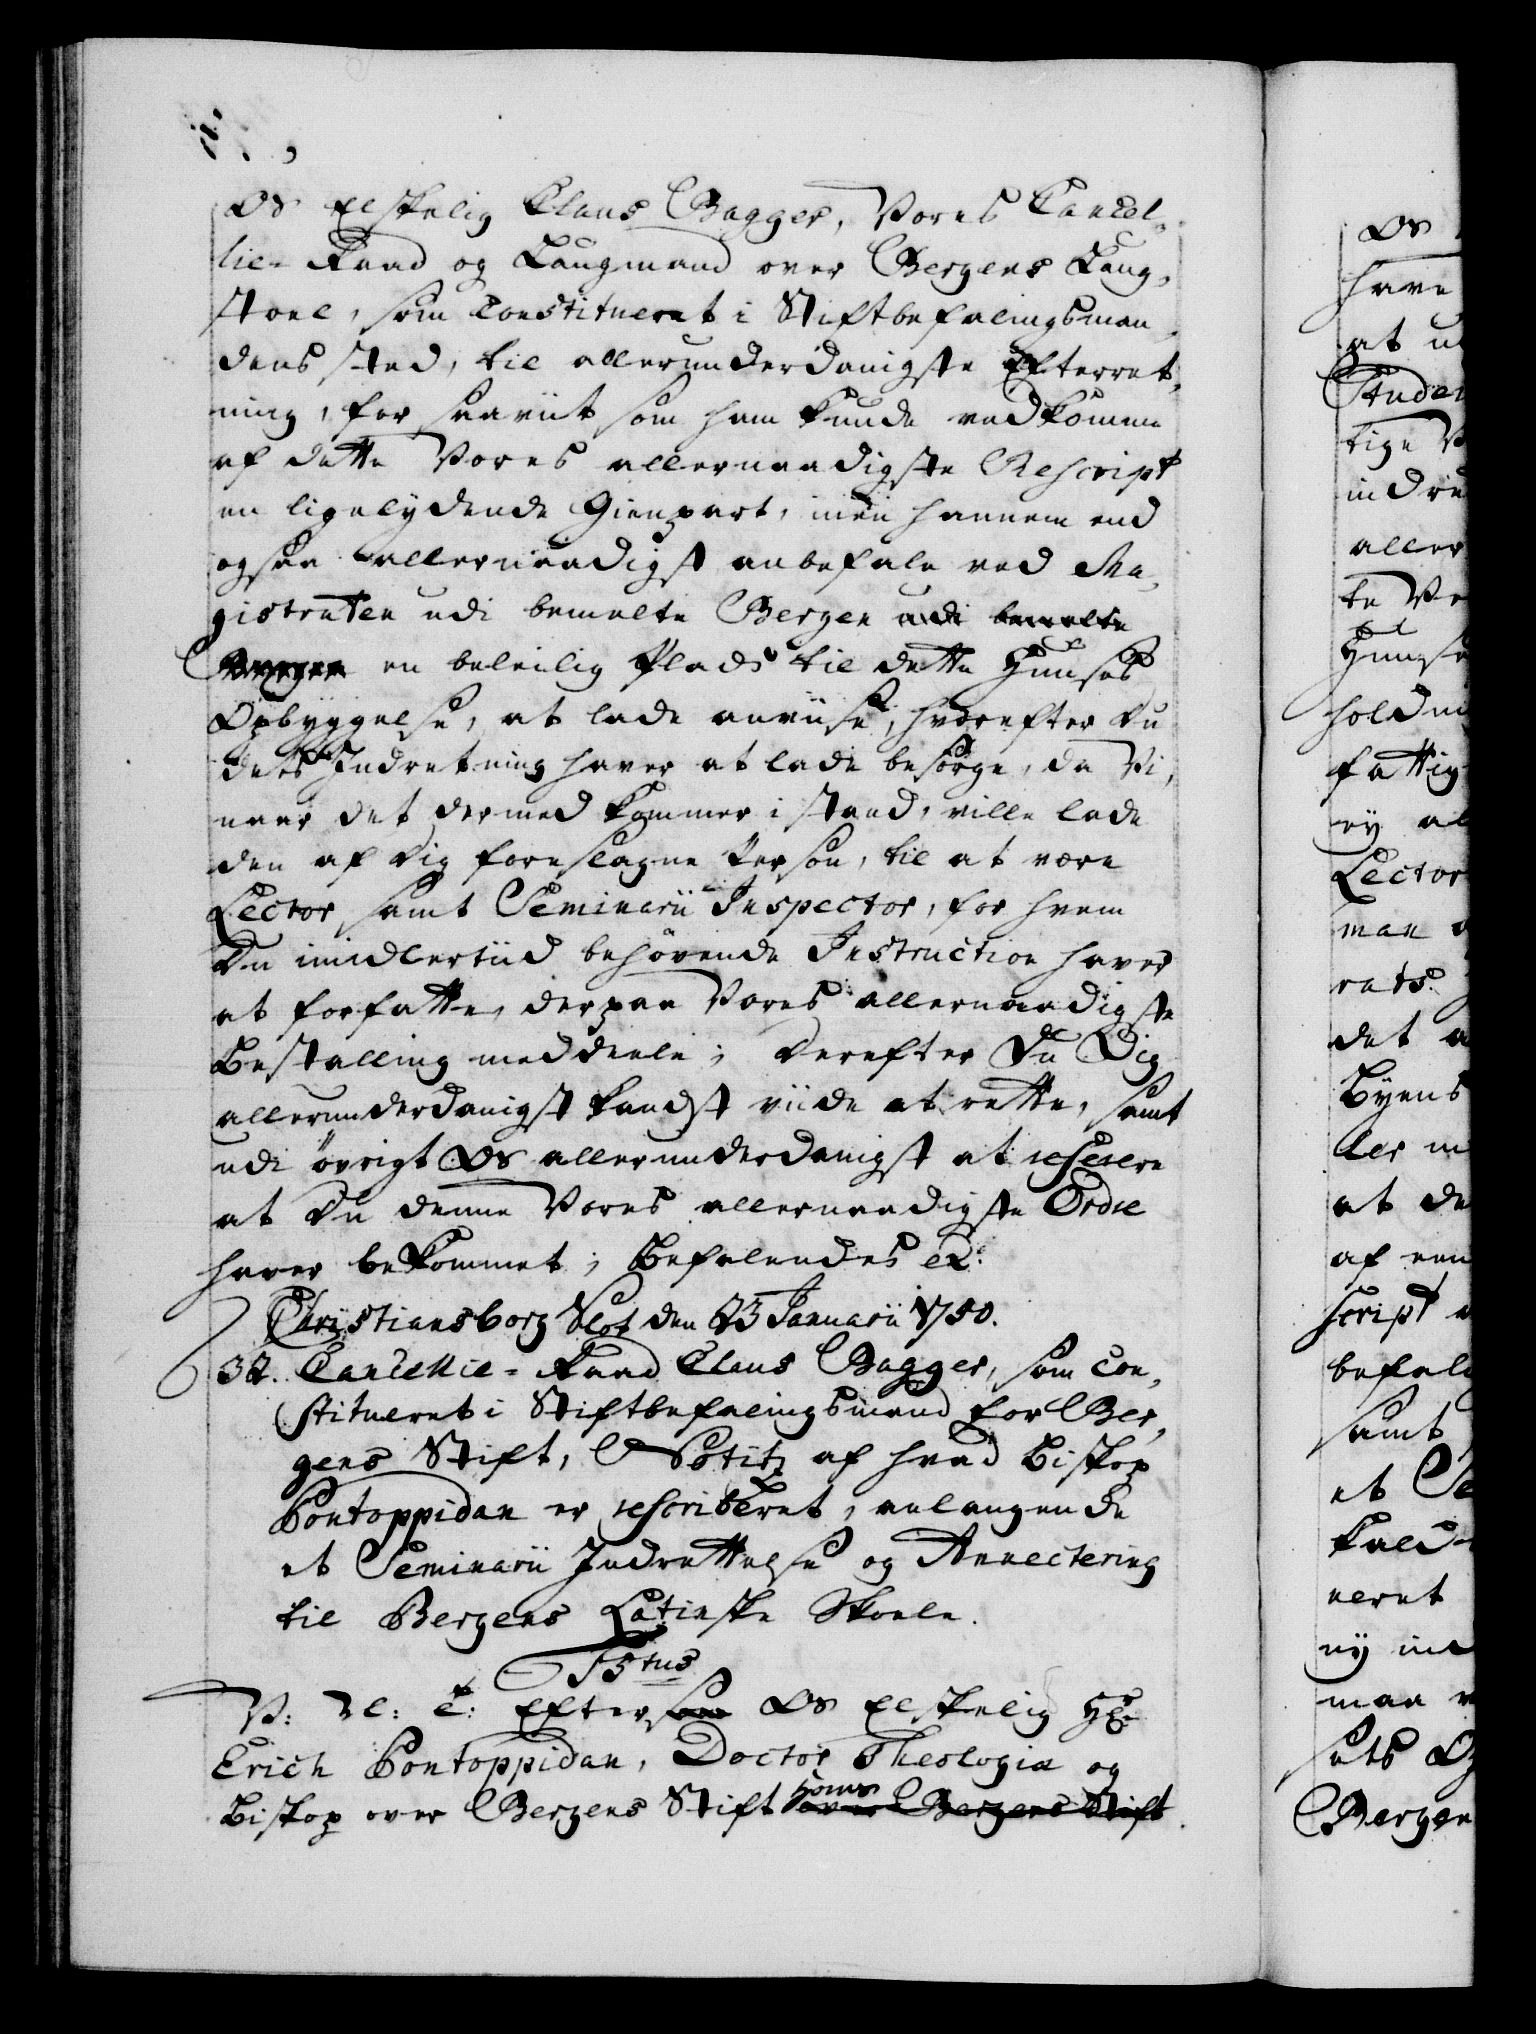 Os Elskelig Claus Bagger, Vores Cancel-
lie-Raad og Laugmand over Bergens Laug-
stoel, som Constitueret i Stiftbefalingsman-
dens sted, til allerunderdanigste Efterret-
ning, for saaviit som ham kunde vedkomme
af dette Vores allernaadigste Rescript
en ligelydende Gienpart, men hannem end
ogsaa allernaadigst anbefale ved Ma-
gistraten udi bemelte Bergen udi bemelte
Bergen en beleilig Plads til dette Huuses
Opbyggelse, at lade anviise, hvorefter Du
dets Indretning haver at lade besørge, da Vi,
naar det dermed kommer i stand, ville lade
den af Dig foreslagne Person, til at være
Lector samt Seminarii Inspector, for hvem
Du imidlertiid behøvende Instruction haver
at forfatte, derpaa Vores allernaadigste
Bestalling meddeele; Derefter Du Dig
allerunderdanigst kandst viide at rette, samt
udi øvrigt Os allerunderdanigst at referere
at Du denne Vores allernaadigste Ordre
haver bekommet; Befalendes etc:
Christiansborg Slot den 23 Januarii 1750.
32. Cancellie-Raad Claus Bagger, som Con-
stitueret i Stiftbefalingsmand for Ber-
gens Stift, Notitz af hvad Biskop
Pontoppidan er rescriberet, anlangende
et Seminarii Indrettelse og Annectering
til Bergens Latinske Skoele.
F5tus
V: Efter som Os Elskelig Hr
Erich Pontoppidan, Doctor Theologiæ og
Biskop over Bergens Stift over Bergens Stift
Os
have
at
Studen
tige
indre
aller
te
Huuse
holdni
fattig
ey al
Lector
man
rats
det
Byens
ler
at de
af een
script
befale
samt
et Se
kald
neret
ey
maa
sets
Bergen